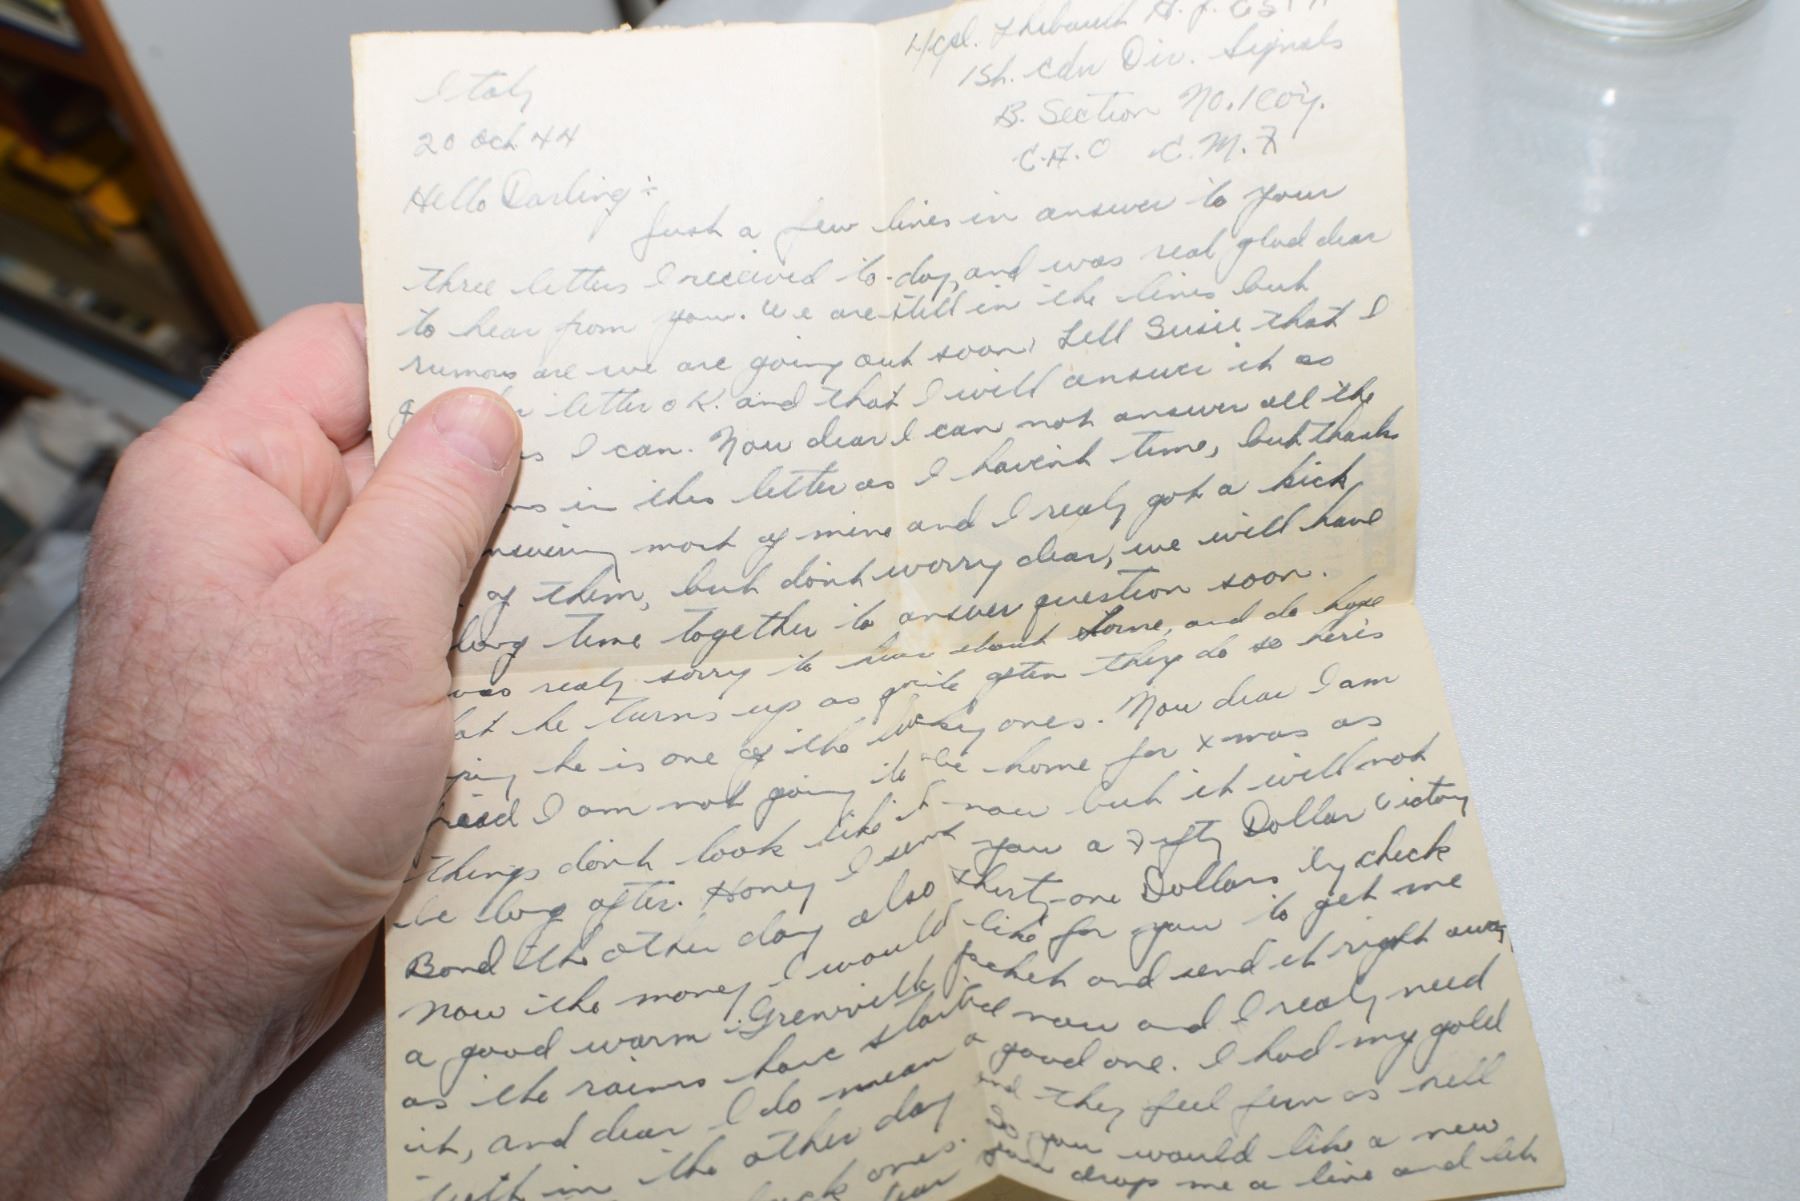 L/Cpl. Thibault H. J.
1st. Cdn Div. Signals
B. Section No. 1 Coy.
C.A.O C.M.F
Italy
20 Oct. 44
Hello Darling:
Just a few lines in answer to your
three letters I received to-day, and was real glad dear
to hear from you. We are still in the lines but
rumors are we are going out soon, Tell Susie that I
letter O.K. and that I will answer it as
as I can. Now dear I can not answer all the
ns in this letter as I havent time, but thanks
nswering most of mine and I realy got a kick
of them, but dont worry dear, we will have
long time together to answer question soon.
was realy sorry to hear about Lorne, and do hope
at he turns up as quite often they do so here's
ping he is one of the lucky ones. Now dear I am
I am not going to be home for x-mas as
things dont look like it now but it will not
be long after. Honey I sent you a Fifty Dollar Victory
Bond the other day also Thirty-one Dollars by check
Now the money I would like for you to get me
a good warm jacket and send it right away
as the rains have started now and I realy need
it, and dear I do mean a good one. I had my gold
teeth in the other day and they feel fun as hell
ones. So you would like a new
dear you drop me a line and let